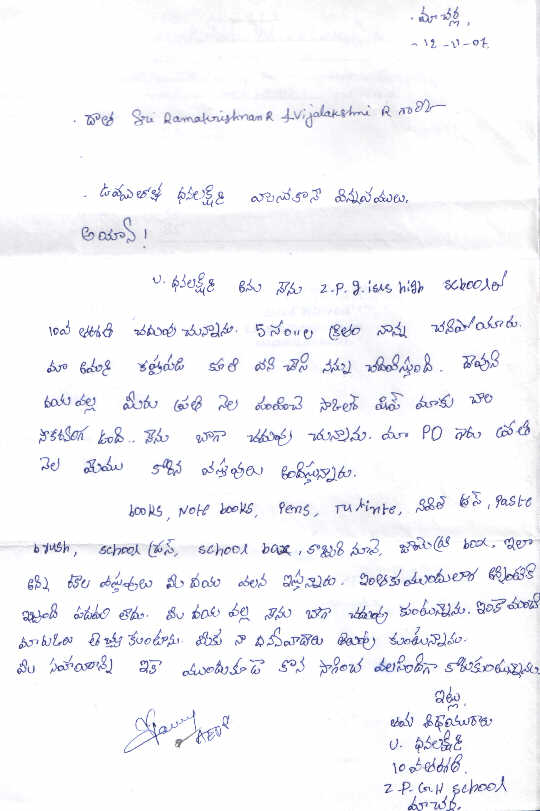 మాచర్ల,
- 12-11-07
దాత Sri Ramakrishnan R & Vijalakshmi R గారికి
ఉప్పుతోళ్ల ధనలక్ష్మి వ్రాసుకొనే విన్నపములు.
అయ్యా!
U. ధనలక్ష్మి అను నేను Z.P. girls high schoolలో
10వ తరగతి చదువు చున్నాను. 5 సం॥ల క్రితం నాన్న చనిపోయారు.
మా అమ్మ కష్టపడి కూలి పని చేసి నన్ను చదివిస్తుంది. దేవుని
దయ వల్ల మీరు ప్రతి నెల పంపించే స్కాలర్ షిప్ మాకు చాల
సౌకర్యంగ ఉంది.. నేను బాగా చదువు చున్నాను. మా PO గారు ప్రతి
నెల మేము కోరిన వస్తువులు అందిస్తున్నారు.
books, Note books, Pens, పేస్ట్ Paste
brush, school డ్రస్, school box, కొబ్బరి నూనె, జామెట్రి box, ఇలా
అన్ని రకాల వస్తువులు మీ దయ వలన ఇస్తున్నారు. ఇంతకుముందులాగ అన్నింటికి
ఇబ్బంది పడటం లేదు. మీ దయ వల్ల నేను బాగా చదువు కుంటున్నాను. ఇంకా మంచి
మార్కులు తెచ్చు కుంటాను. మీకు నా ధన్యవాదాలు తెలుపు కుంటున్నాను.
మీ సహాయాన్ని ఇకా ముందుకూడా కొన సాగించ వలసిందిగా కోరుకుంటున్నాను.
ఇట్లు,
తమ విధేయురాలు
U. ధనలక్ష్మి
10వ తరగతి.
Z.P.G.H School
మాచర్ల.